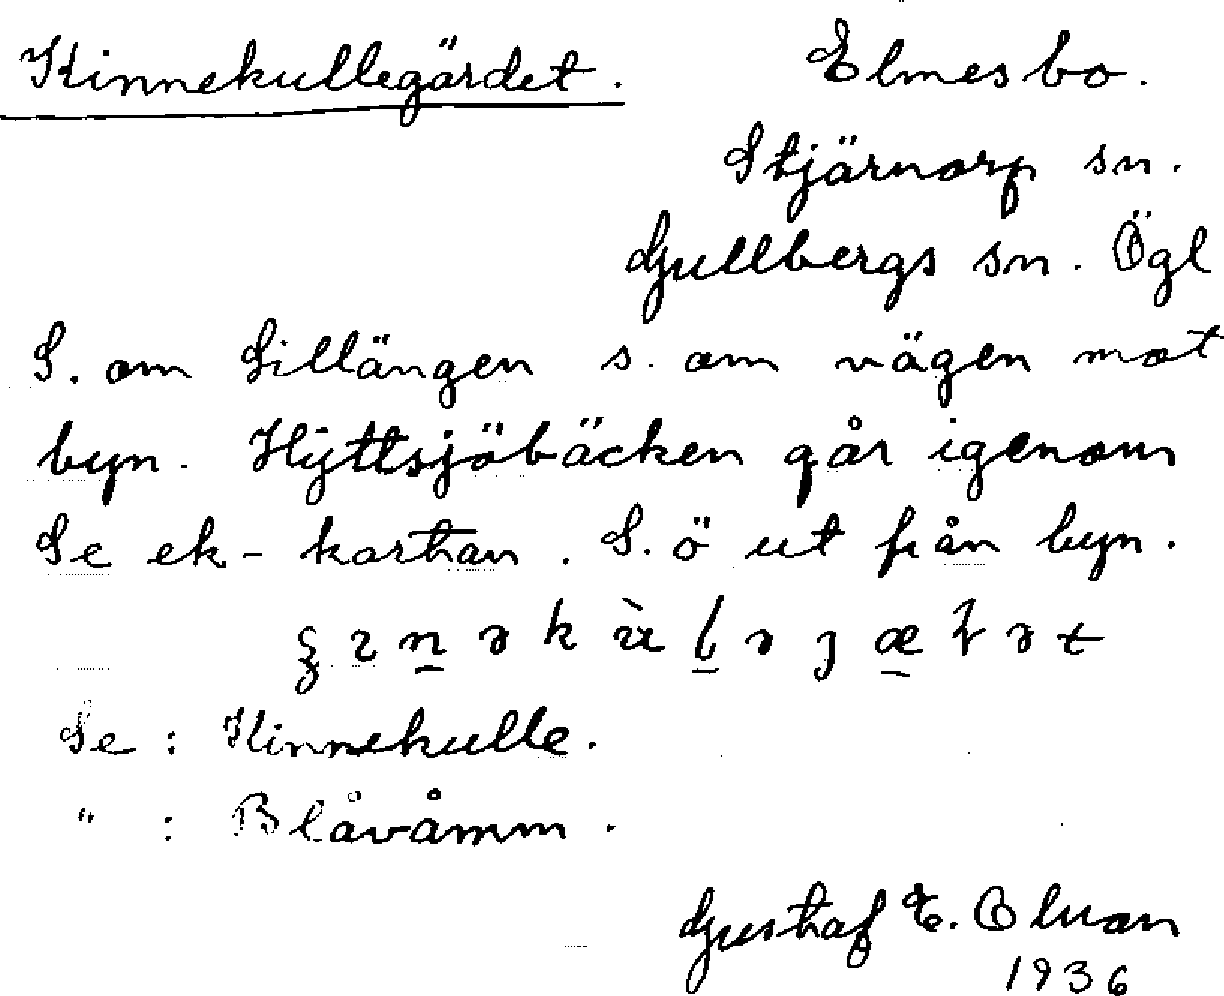 Kinnekullegärdet. Elmesbo.
Stjärnorp sn.
Gullbergs sn. Ögl
S. om Lillängen s. om vägen mot
byn. Hyttsjöbäcken går igenom
Se ek-kartan. S.ö ut från byn.
Se : Kinnekulle.
" : Blåvåmm.
Gustaf E. Olson
1936